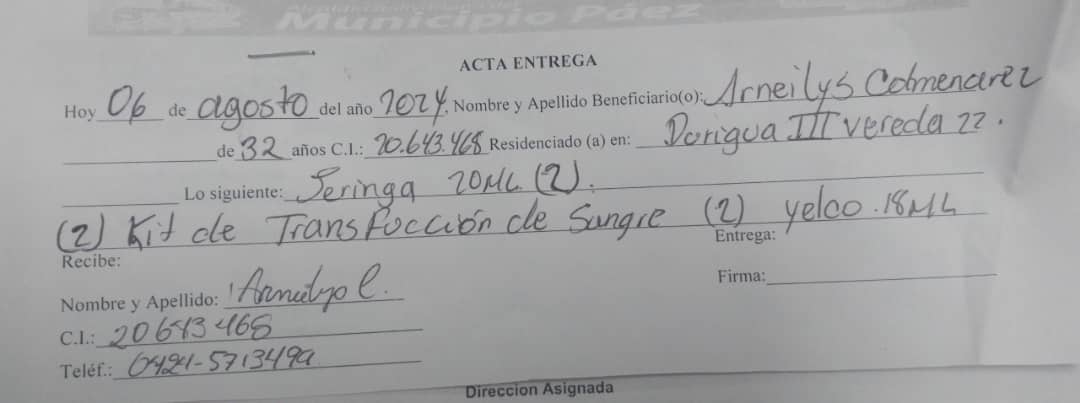 Municipio Páez
ACTA ENTREGA
Hoy 06 de agosto del año 2024, Nombre y Apellido Beneficiario(o): Arneilys Colmenarez
de 32 años C.I.: 20.643.468 Residenciado (a) en: Durigua III vereda 22.
Lo siguiente: Jeringa 20ML (2).
(2) Kit de Transfucción de Sangre (2) yelco.18ML
Entrega:
Recibe:
Firma:
Nombre y Apellido: Arneilys C.
C.I.: 20643468
Teléf.: 0424-5713499
Direccion Asignada